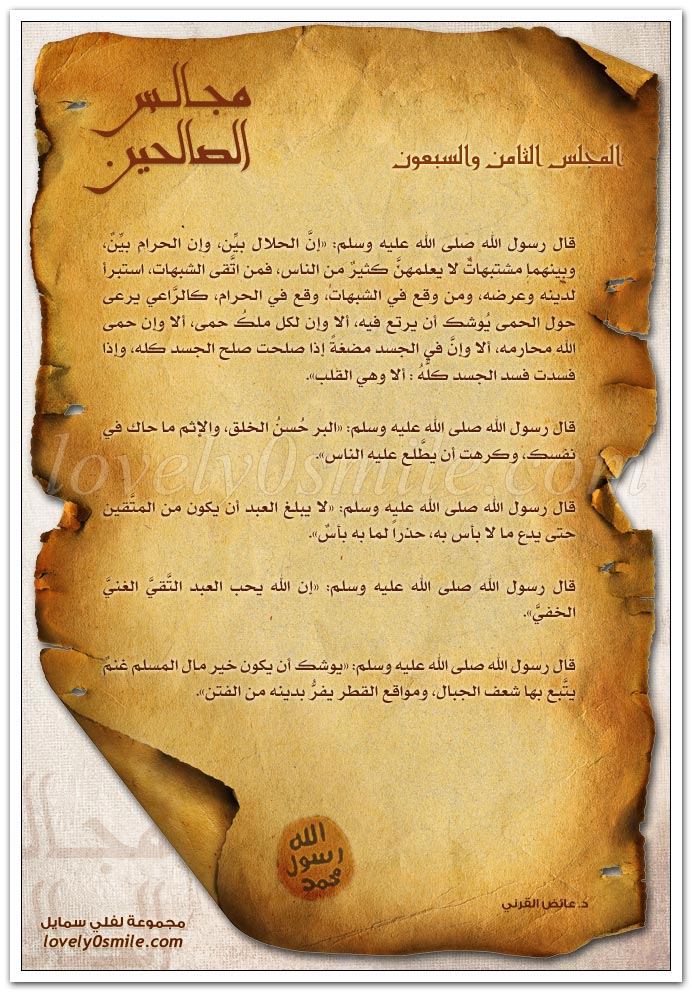 مجالس
الصالحين
المجلس الثامن والسبعون
قال رسول الله صلى الله عليه وسلم: «إنَّ الحلال بيِّن، وإن الحرام بيِّنٌ،
وبينهما مشتبهاتٌ لا يعلمهنَّ كثيرٌ من الناس، فمن اتَّقى الشبهات، استبرأ
لدينه وعرضه، ومن وقع في الشبهات، وقع في الحرام، كالرَّاعي يرعى
حول الحمى يُوشك أن يرتع فيه، ألا وإن لكل ملكُ حمى، ألا وإن حمى
الله محارمه، ألا وإنَّ في الجسد مضغةً إذا صلحت صلح الجسد كله، وإذا
فسدت فسد الجسد كلُّهُ : ألا وهي القلب».
قال رسول الله صلى الله عليه وسلم: «البر حُسنُ الخلق، والإثم ما حاك في
نفسك، وكرهت أن يطَّلع عليه الناس».
lovely0smile.com
قال رسول الله صلى الله عليه وسلم: «لا يبلغ العبد أن يكون من المتَّقين
حتى يدع ما لا بأس به، حذراً لما به بأسٌ».
قال رسول الله صلى الله عليه وسلم: «إن الله يحب العبد التَّقيَّ الغنيَّ
الخفيَّ».
قال رسول الله صلى الله عليه وسلم: «يوشك أن يكون خير مال المسلم غنمٌ
يتَّبع بها شعف الجبال، ومواقع القطر يفرُّ بدينه من الفتن».
الله
رسول
محمد
د. عائض القرني
مجموعة لفلي سمايل
lovely0smile.com
مجالس
الصالحين